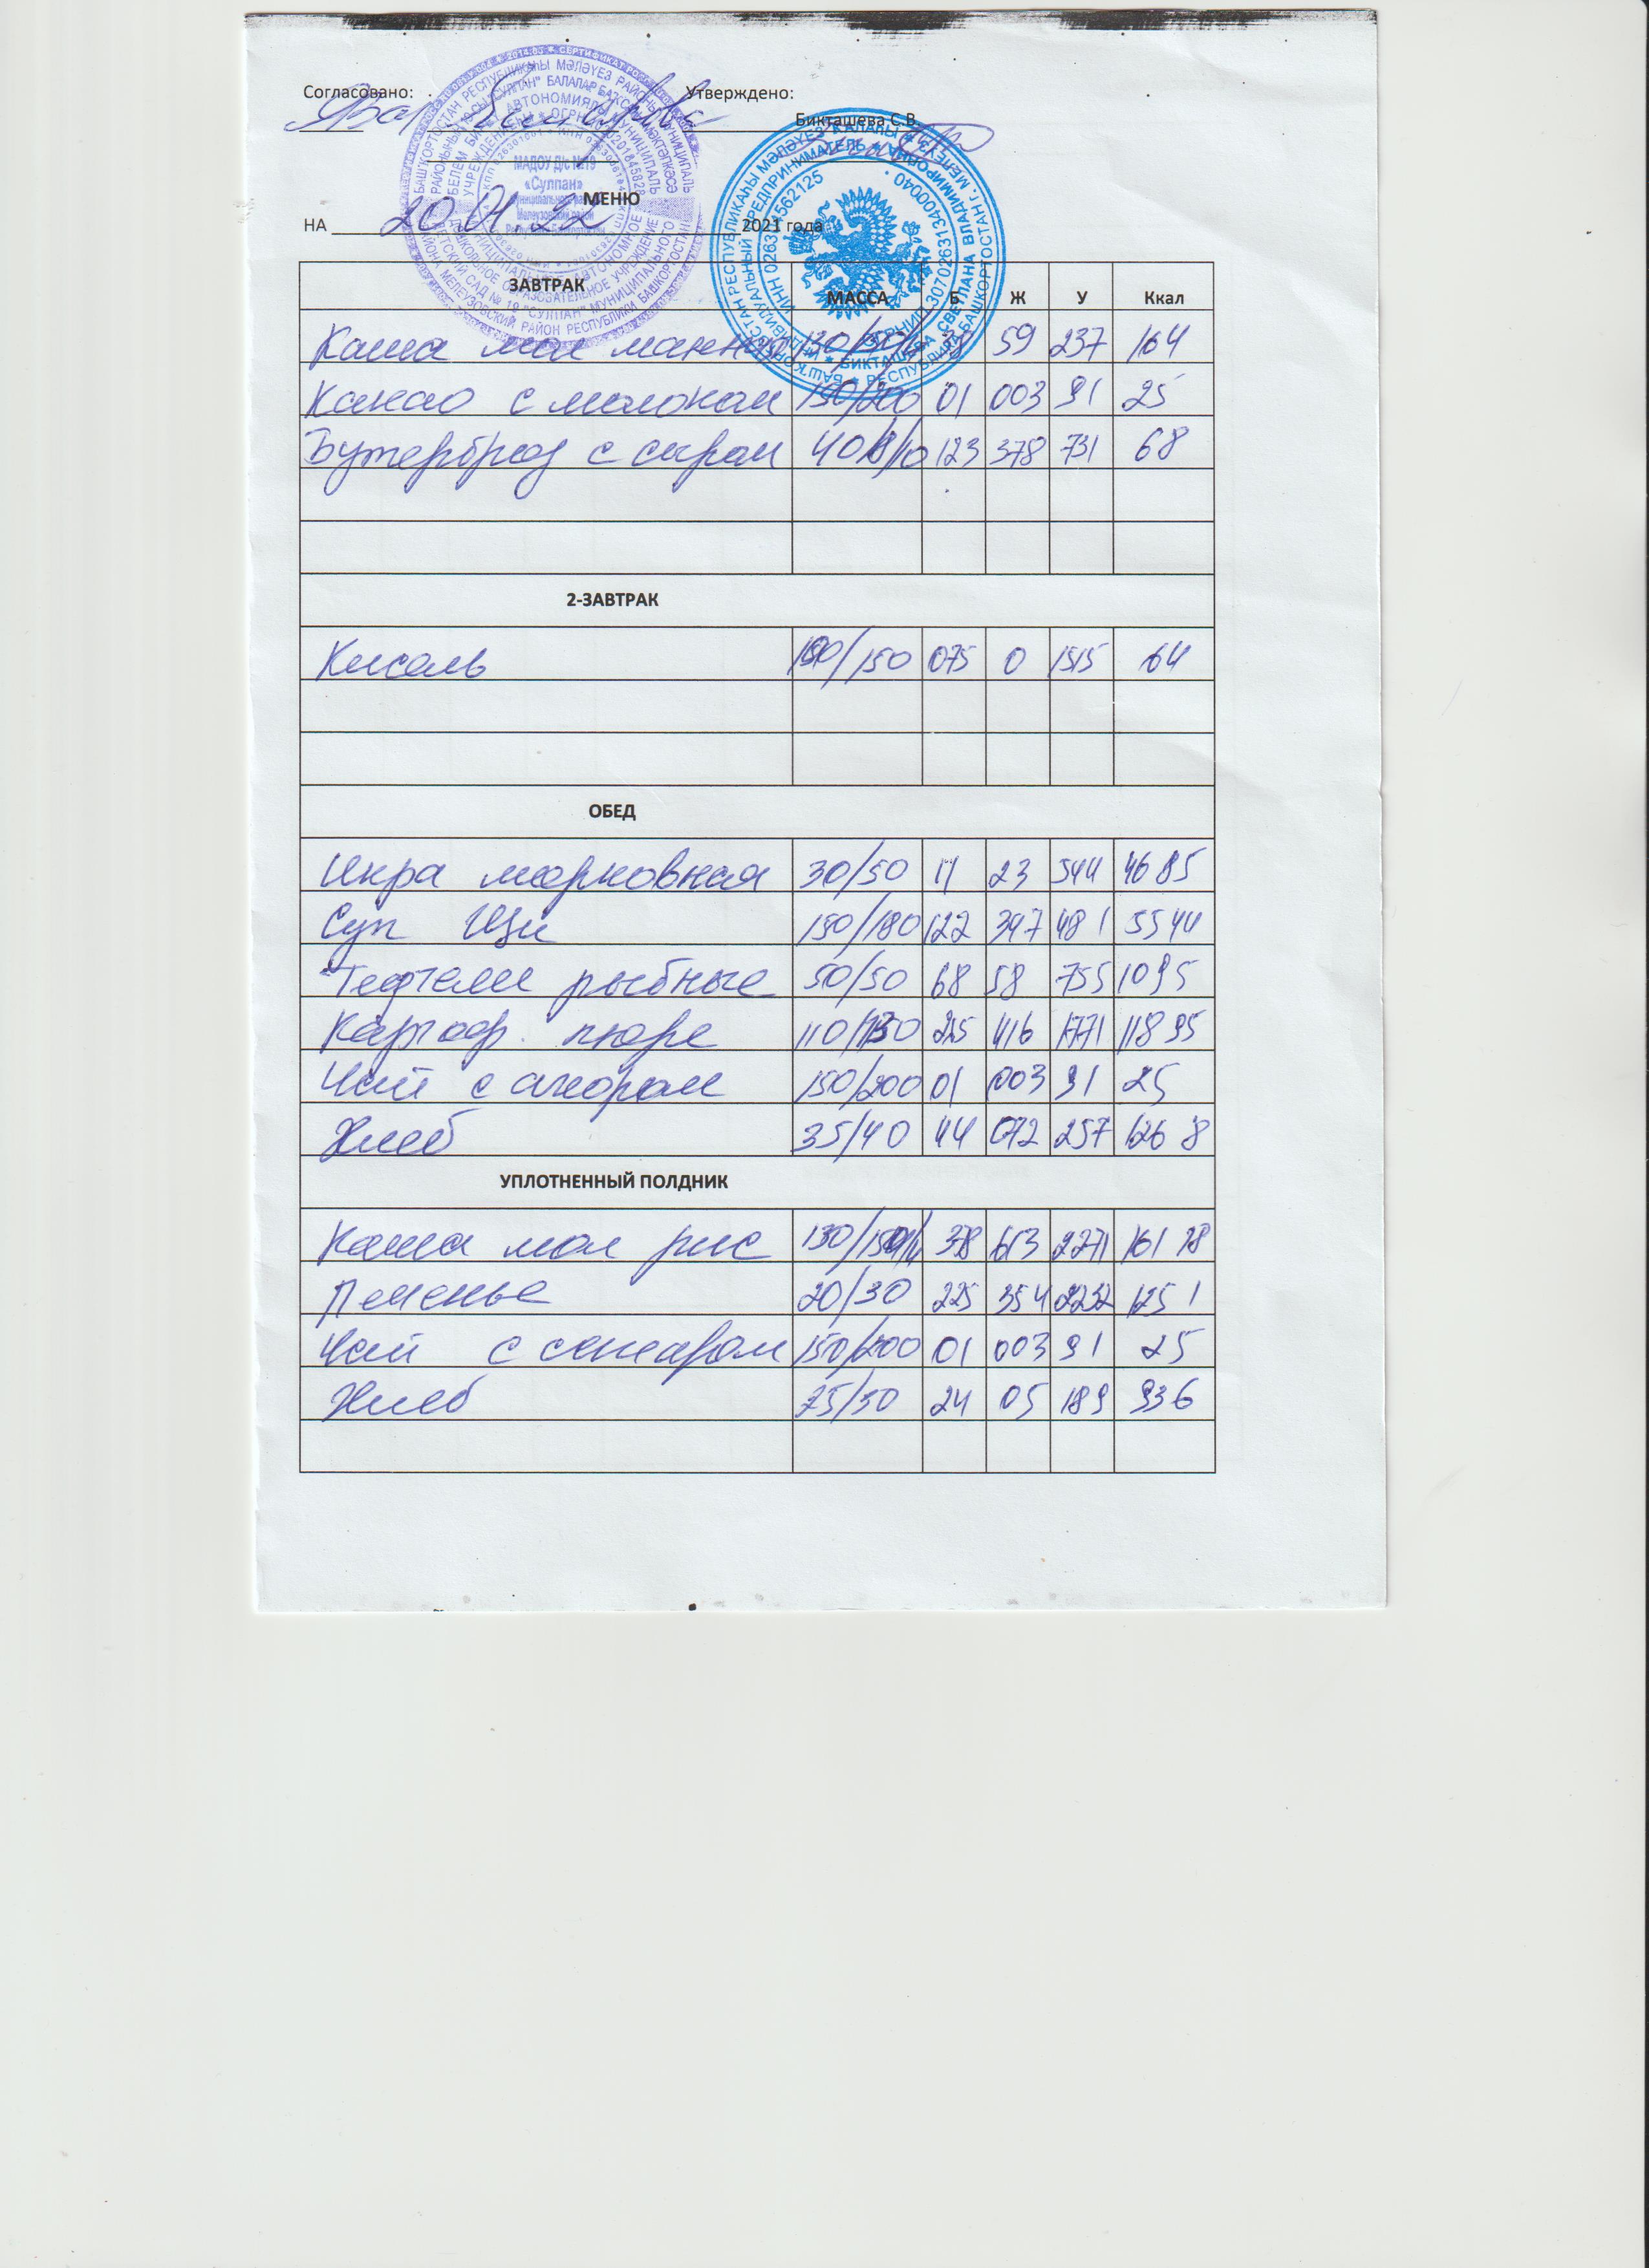 Согласовано: Утверждено:
Бикташева С.В.
МЕНЮ
НА 20.01.22 2021 года
ЗАВТРАК МАССА Б Ж У Ккал
Каша мол манная 130/150/ 38 59 237 164
Какао с молоком 150/200 01 003 91 25
Бутерброд с сыром 40/ /10 123 378 731 68
2-ЗАВТРАК
Кисель /150 075 0 1515 64
ОБЕД
Икра морковная 30/50 11 23 544 46 85
Суп Щи 150/180 122 397 48 1 55 44
Тефтели рыбные 50/50 68 58 755 10 95
Картоф. пюре 110/130 225 416 1771 118 95
Чай с сахаром 150/200 01 003 91 25
Хлеб 35/40 44 072 257 126 8
УПЛОТНЕННЫЙ ПОЛДНИК
Каша мол рис 130/150/ 378 613 2271 161 78
Печенье 20/30 225 354 2232 125 1
Чай с сахаром 150/200 01 003 91 25
Хлеб 25/30 24 05 189 936
МАДОУ Д/с №19
«Сулпан»